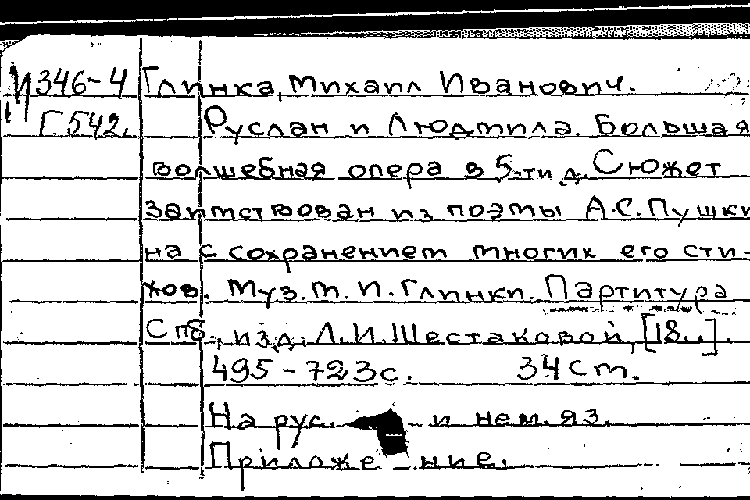 И346-4 Глинка, Михаил Иванович.
Г542. Руслан и Людмила. Большая
волшебная опера в 5-ти д. Сюжет
заимствован из поэмы А.С.Пушки
на с сохранением многих его сти-
хов. Муз. М. И. Глинки. Партитура
Спб., изд. Л.И.Шестаковой, [18..].
495-723с. 34см.
На рус. и нем. яз.
Приложение.